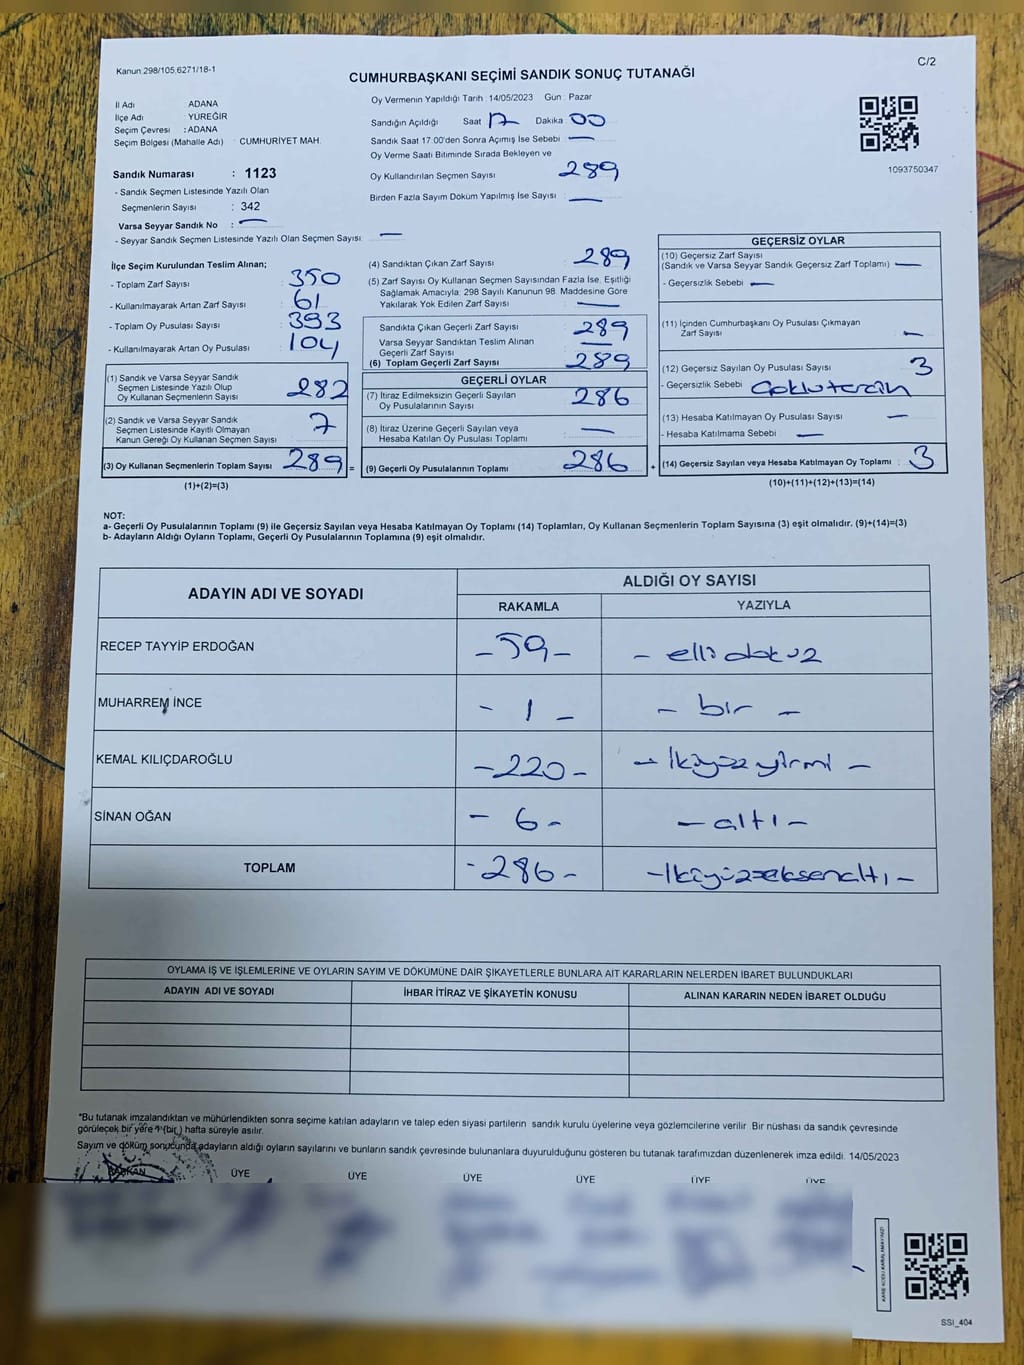 Kanun:298/105;6271/18-1
C/2
CUMHURBAŞKANI SEÇİMİ SANDIK SONUÇ TUTANAĞI
İl Adı : ADANA
İlçe Adı : YÜREĞİR
Seçim Çevresi : ADANA
Seçim Bölgesi (Mahalle Adı) : CUMHURİYET MAH.
Sandık Numarası : 1123
- Sandık Seçmen Listesinde Yazılı Olan
Seçmenlerin Sayısı : 342
Varsa Seyyar Sandık No : —
- Seyyar Sandık Seçmen Listesinde Yazılı Olan Seçmen Sayısı: —
Oy Vermenin Yapıldığı Tarih : 14/05/2023 Gün : Pazar
Sandığın Açıldığı Saat 17 Dakika 00
Sandık Saat 17:00'den Sonra Açımış İse Sebebi : —
Oy Verme Saati Bitiminde Sırada Bekleyen ve
Oy Kullandırılan Seçmen Sayısı : 289
Birden Fazla Sayım Döküm Yapılmış İse Sayısı : —
1093750347
İlçe Seçim Kurulundan Teslim Alınan;
- Toplam Zarf Sayısı : 350
- Kullanılmayarak Artan Zarf Sayısı : 61
- Toplam Oy Pusulası Sayısı : 393
- Kullanılmayarak Artan Oy Pusulası : 104
(1) Sandık ve Varsa Seyyar Sandık
Seçmen Listesinde Yazılı Olup
Oy Kullanan Seçmenlerin Sayısı : 282
(2) Sandık ve Varsa Seyyar Sandık
Seçmen Listesinde Kayıtlı Olmayan
Kanun Gereği Oy Kullanan Seçmen Sayısı : 7
(3) Oy Kullanan Seçmenlerin Toplam Sayısı : 289 =
(1)+(2)=(3)
(4) Sandıktan Çıkan Zarf Sayısı : 289
(5) Zarf Sayısı Oy Kullanan Seçmen Sayısından Fazla İse, Eşitliği
Sağlamak Amacıyla, 298 Sayılı Kanunun 98. Maddesine Göre
Yakılarak Yok Edilen Zarf Sayısı : —
Sandıkta Çıkan Geçerli Zarf Sayısı : 289
Varsa Seyyar Sandıktan Teslim Alınan
Geçerli Zarf Sayısı : —
(6) Toplam Geçerli Zarf Sayısı : 289
GEÇERLİ OYLAR
(7) İtiraz Edilmeksizin Geçerli Sayılan
Oy Pusulalarının Sayısı : 286
(8) İtiraz Üzerine Geçerli Sayılan veya
Hesaba Katılan Oy Pusulası Toplamı : —
(9) Geçerli Oy Pusulalarının Toplamı : 286 +
GEÇERSİZ OYLAR
(10) Geçersiz Zarf Sayısı
(Sandık ve Varsa Seyyar Sandık Geçersiz Zarf Toplamı) : —
- Geçersizlik Sebebi : —
(11) İçinden Cumhurbaşkanı Oy Pusulası Çıkmayan
Zarf Sayısı : —
(12) Geçersiz Sayılan Oy Pusulası Sayısı : 3
- Geçersizlik Sebebi : Çoklu tercih
(13) Hesaba Katılmayan Oy Pusulası Sayısı : —
- Hesaba Katılmama Sebebi : —
(14) Geçersiz Sayılan veya Hesaba Katılmayan Oy Toplamı : 3
(10)+(11)+(12)+(13)=(14)
NOT:
a- Geçerli Oy Pusulalarının Toplamı (9) ile Geçersiz Sayılan veya Hesaba Katılmayan Oy Toplamı (14) Toplamları, Oy Kullanan Seçmenlerin Toplam Sayısına (3) eşit olmalıdır. (9)+(14)=(3)
b- Adayların Aldığı Oyların Toplamı, Geçerli Oy Pusulalarının Toplamına (9) eşit olmalıdır.
ADAYIN ADI VE SOYADI
ALDIĞI OY SAYISI
RAKAMLA YAZIYLA
RECEP TAYYİP ERDOĞAN - 59 - - elli dokuz
MUHARREM İNCE - 1 - - bir -
KEMAL KILIÇDAROĞLU - 220 - - İkiyüz yirmi -
SİNAN OĞAN - 6 - - altı -
TOPLAM - 286 - - İkiyüzseksenaltı -
OYLAMA İŞ VE İŞLEMLERİNE VE OYLARIN SAYIM VE DÖKÜMÜNE DAİR ŞİKAYETLERLE BUNLARA AİT KARARLARIN NELERDEN İBARET BULUNDUKLARI
ADAYIN ADI VE SOYADI İHBAR İTİRAZ VE ŞİKAYETİN KONUSU ALINAN KARARIN NEDEN İBARET OLDUĞU
*Bu tutanak imzalandıktan ve mühürlendikten sonra seçime katılan adayların ve talep eden siyasi partilerin sandık kurulu üyelerine veya gözlemcilerine verilir. Bir nüshası da sandık çevresinde
görülecek bir yere 1 (bir) hafta süreyle asılır.
Sayım ve döküm sonucunda adayların aldığı oyların sayılarını ve bunların sandık çevresinde bulunanlara duyurulduğunu gösteren bu tutanak tarafımızdan düzenlenerek imza edildi. 14/05/2023
BAŞKAN ÜYE ÜYE ÜYE ÜYE ÜYE ÜYE
KARE KODU KARALAMAYINIZ!
SSI_404